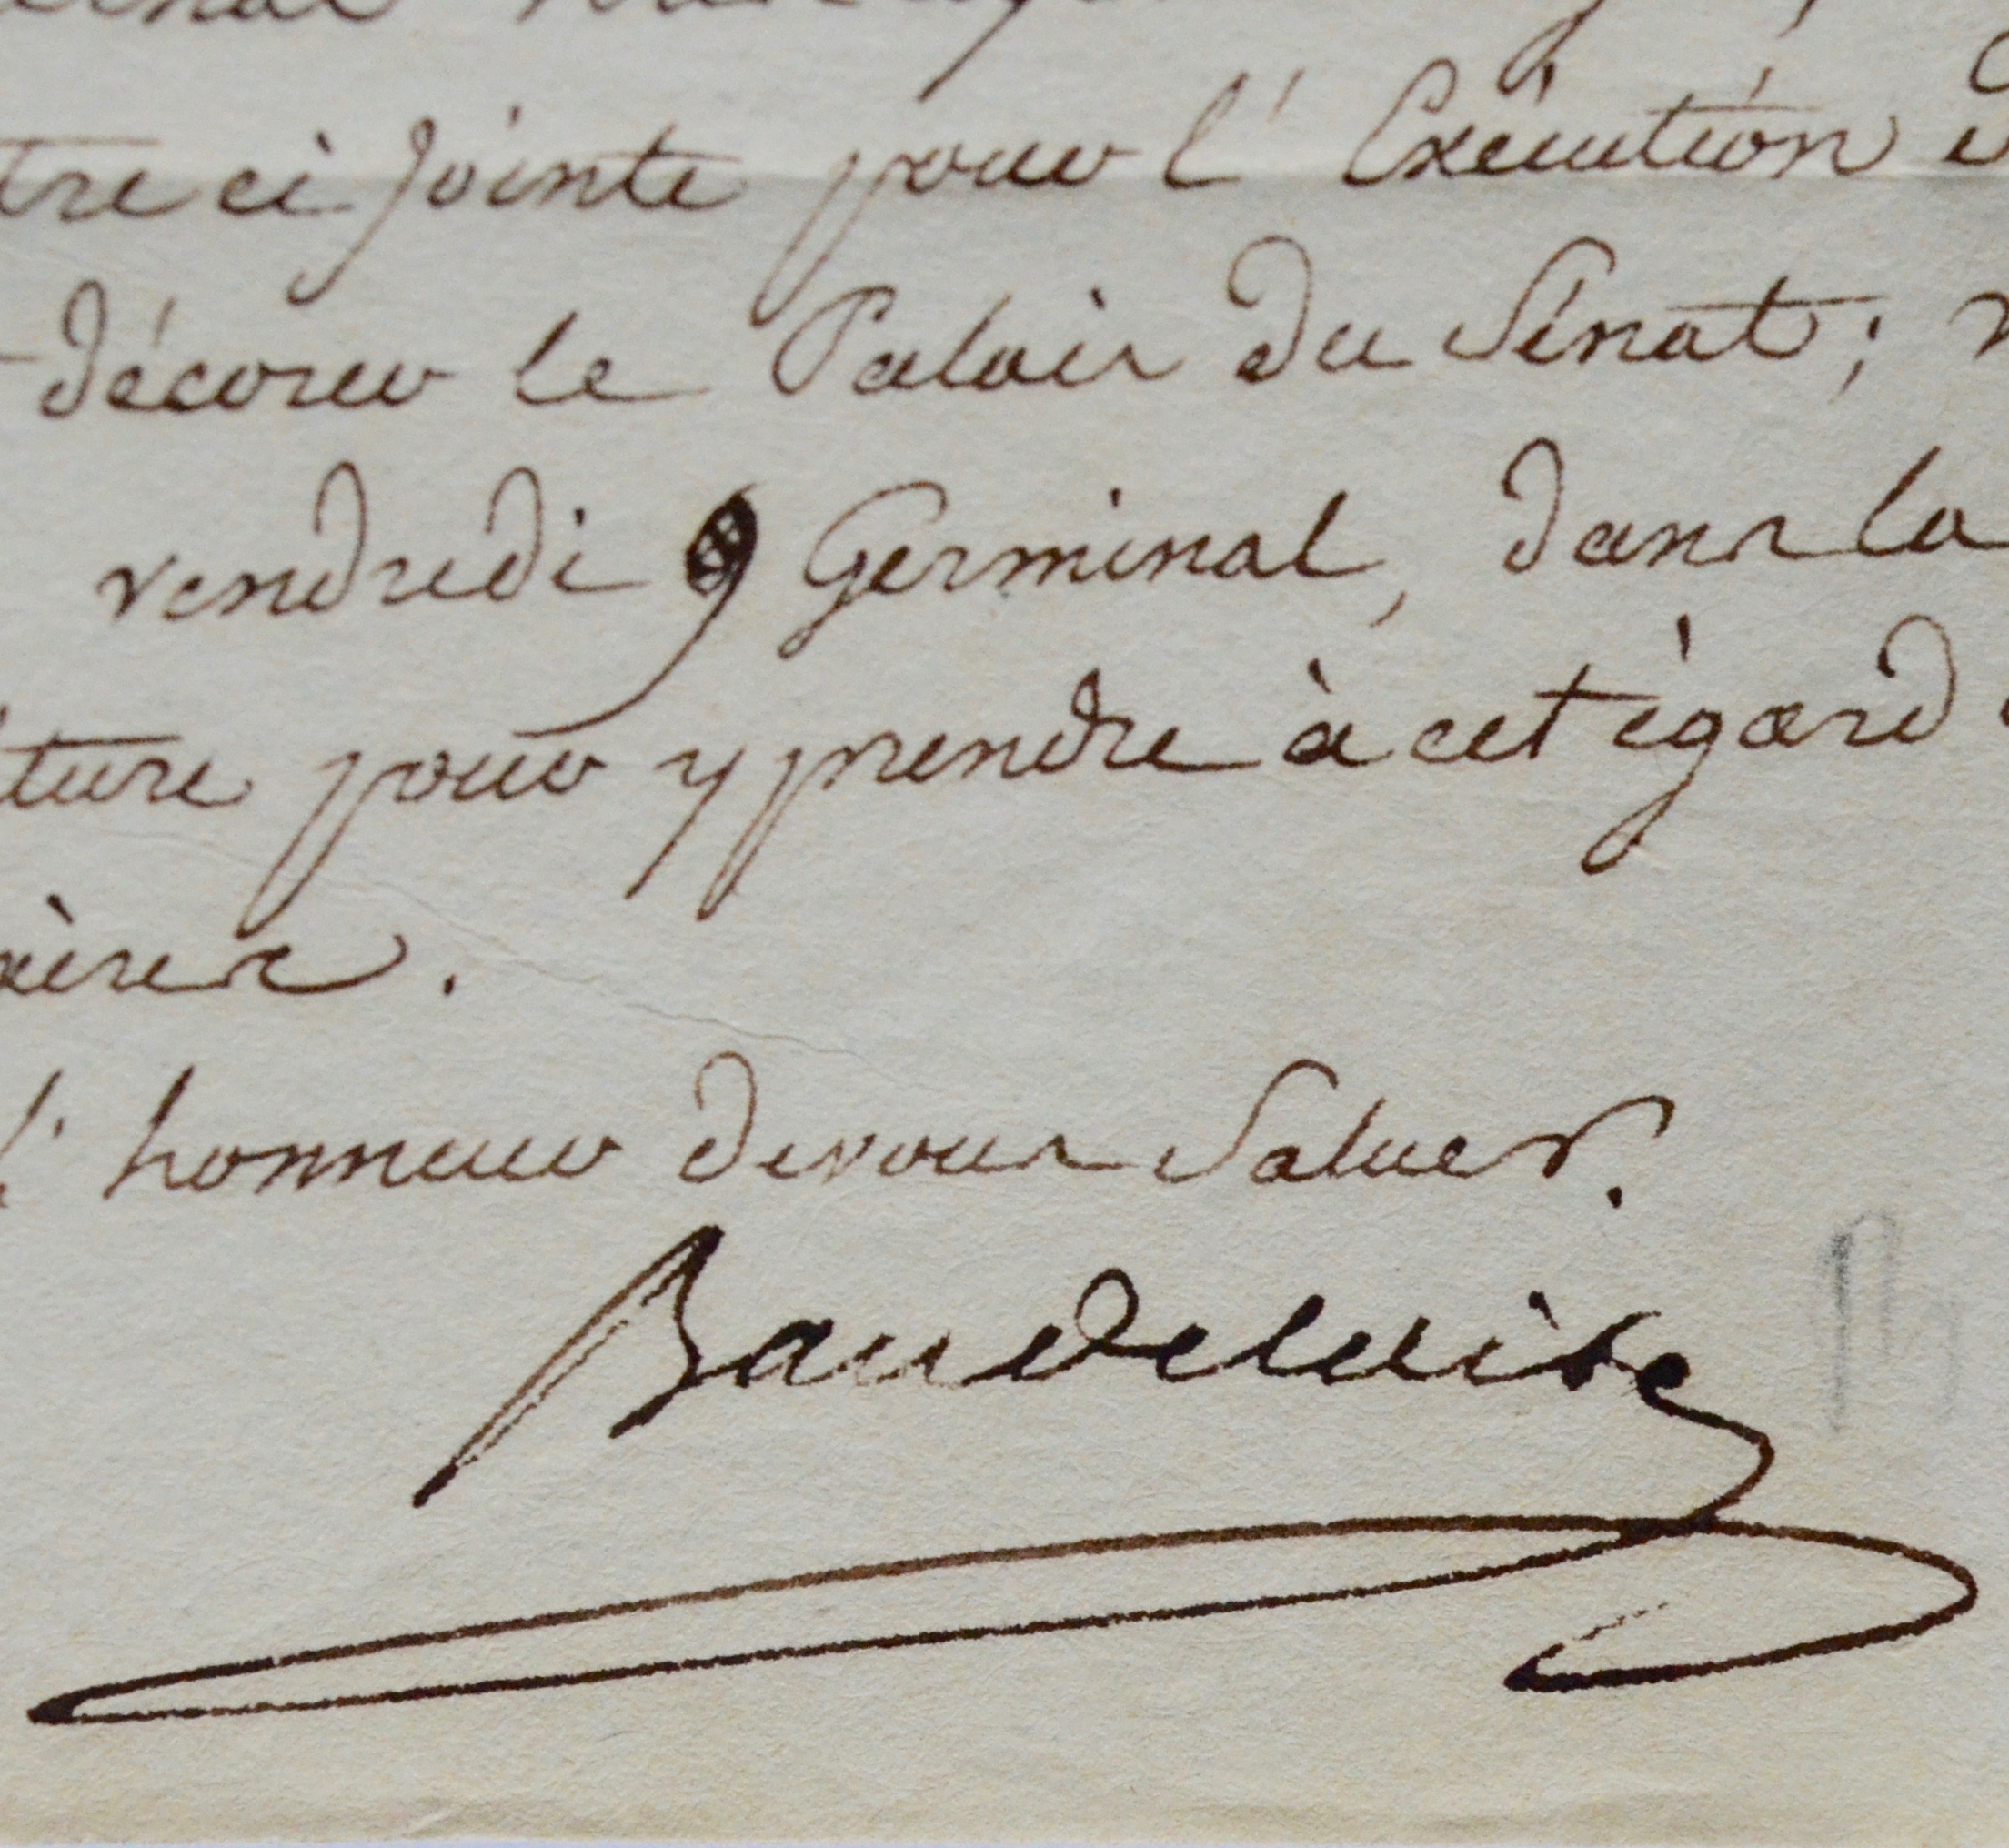 tre ci jointe pour l'Exécution
décorer le Palais du Sénat;
vendredi 9 Germinal, dans la
ture pour y prendre à cet ègard
aires.
l'honneur de vous Saluer.
Baudelaire